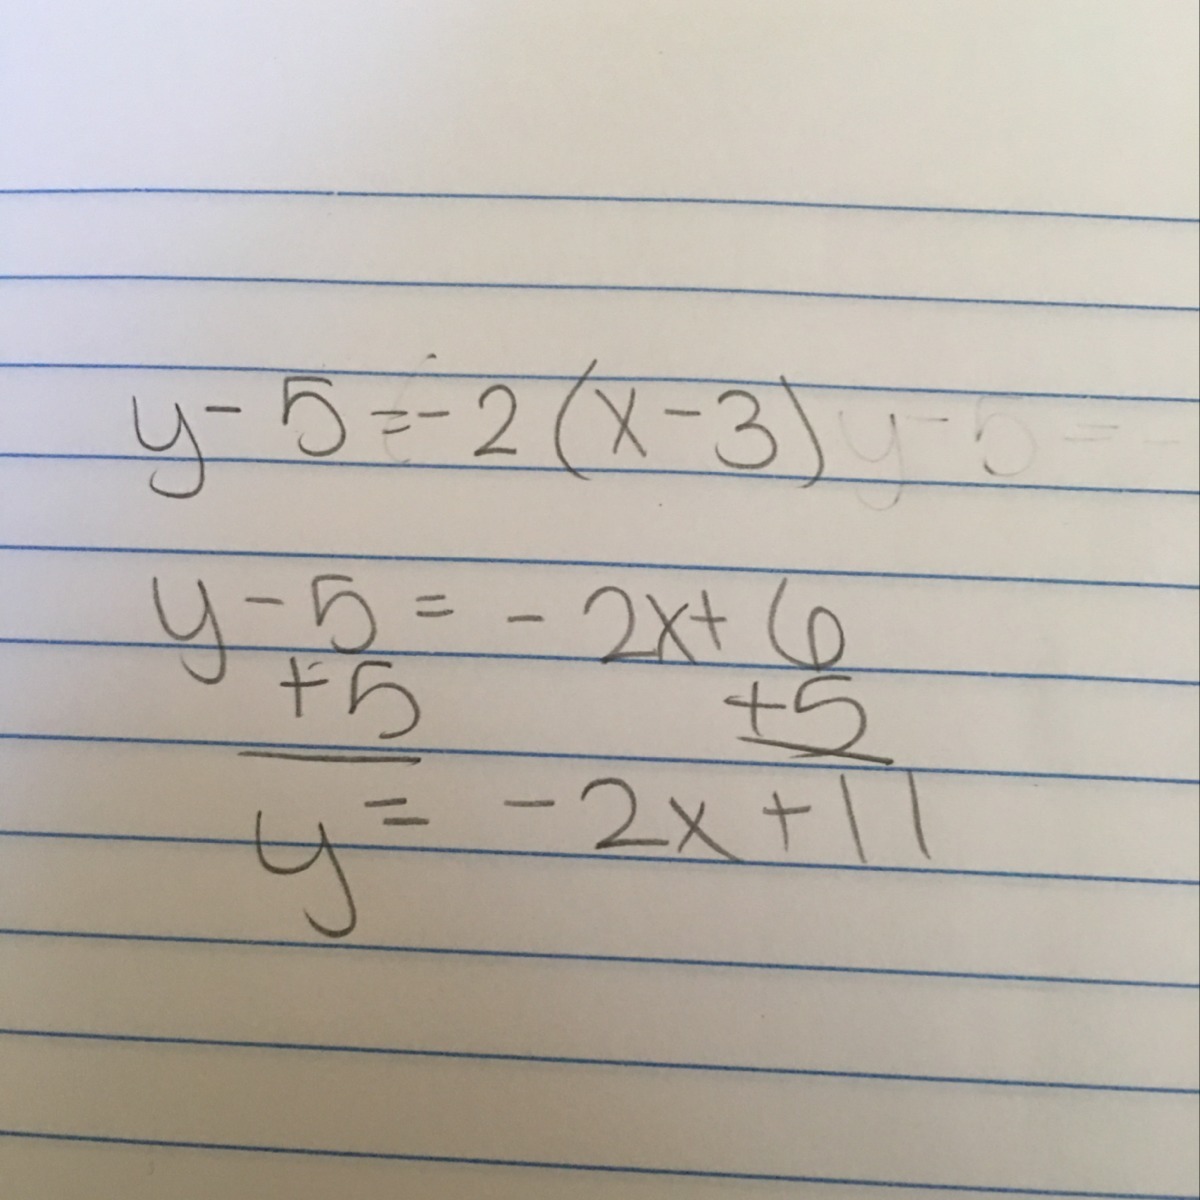 y - 5 = -2(x - 3) y - 5 = -
y - 5 = - 2x + 6
+5 +5
y = -2x + 11